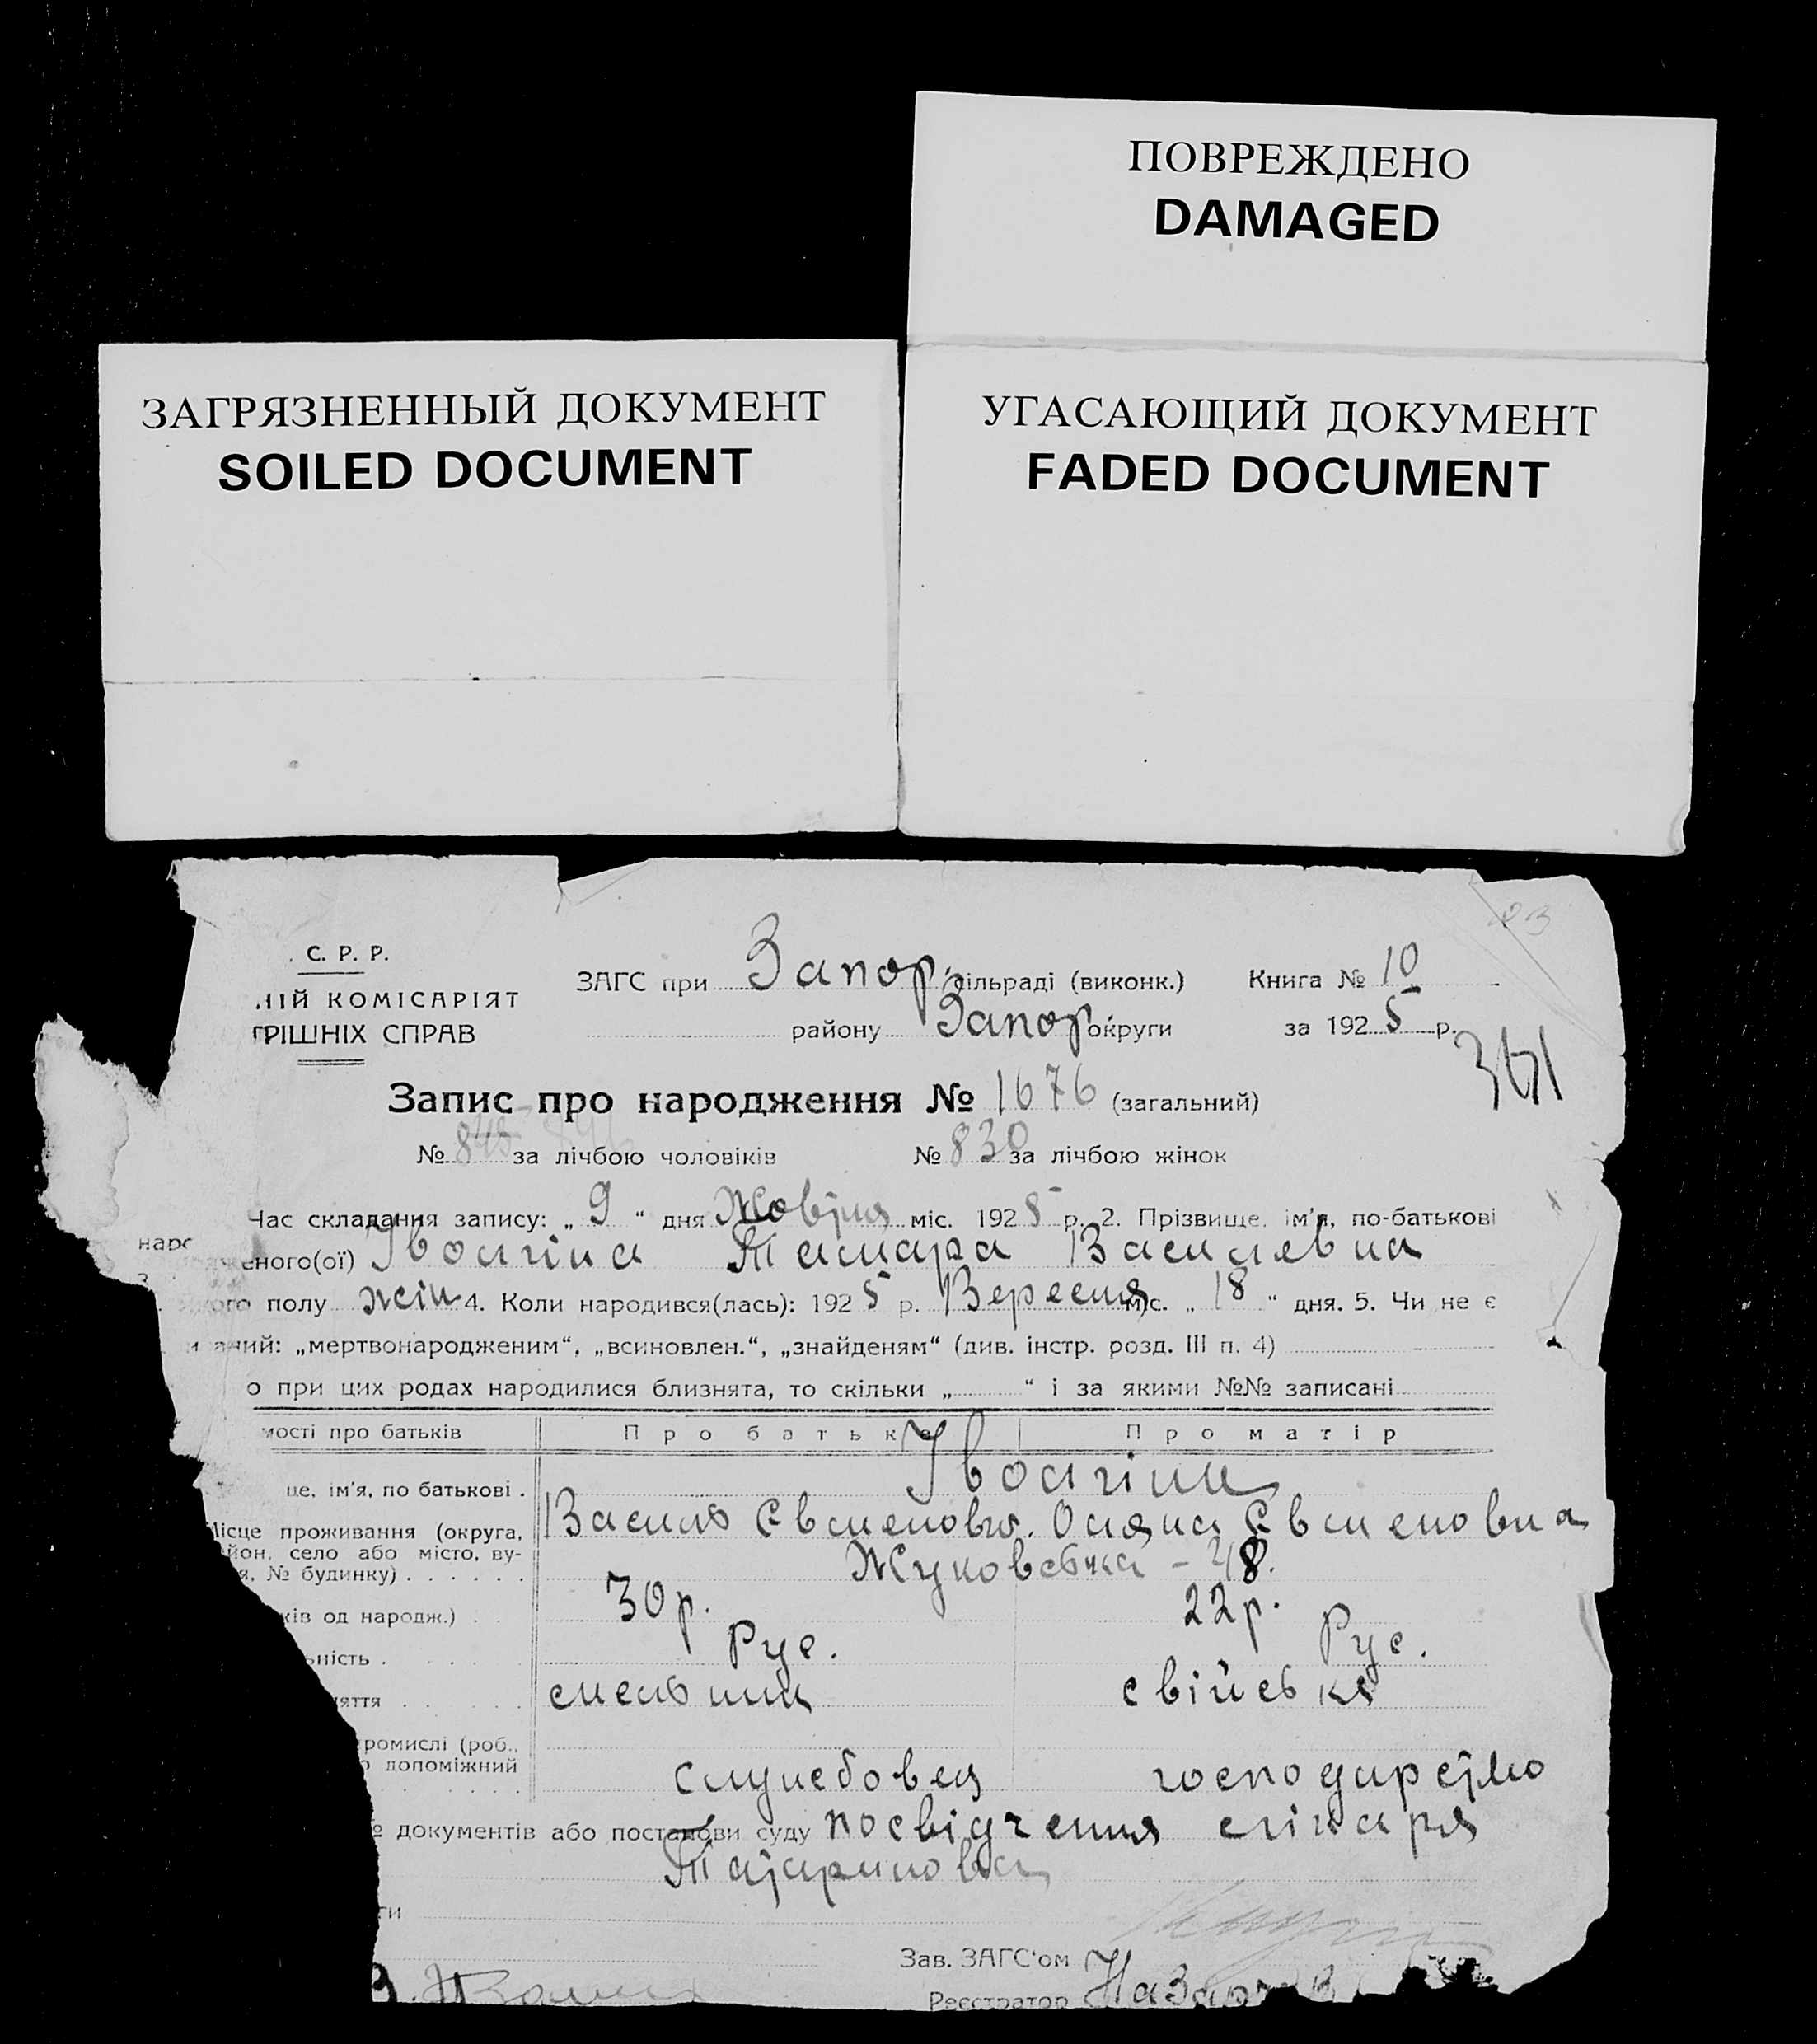 ПОВРЕЖДЕНО
DAMAGED
ЗАГРЯЗНЕННЫЙ ДОКУМЕНТ
SOILED DOCUMENT
УГАСАЮЩИЙ ДОКУМЕНТ
FADED DOCUMENT
23
С. Р. Р.
НІЙ КОМІСАРІЯТ
РІШНІХ СПРАВ
ЗАГС при Запор. сільраді (виконк.) Книга № 10
району Запор. округи за 1925 р.
361
Запис про народження № 1676 (загальний)
№ 845 за лічбою чоловіків № 830 за лічбою жінок
Час складання запису: „ 9 “ дня Жовтня міс. 1925 р. 2. Прізвище, ім'я, по-батькові
народженого(ої) Івоагіна Тамара Василевна
полу жін 4. Коли народився(лась): 1925 р. Вересня міс. „ 18 “ дня. 5. Чи не є
аний: „мертвонародженим“, „всиновлен.“, „знайденям“ (див. інстр. розд. III п. 4)
о при цих родах народилися близнята, то скільки „ “ і за якими №№ записані
мості про батьків Про батька Про матір
це, ім'я, по батькові . Івоагіни
Василь Євменович. Евменовна
Місце проживання (округа,
йон, село або місто, ву-
я, № будинку) . . . . . . Жуковська - 48.
ків од народж.) . . 30 р. 22 р.
ьність . Рус. Рус.
яття . . . свійське
ромислі (роб.,
о допоміжний
службовец господарство
№ документів або постанови суду посвідчення лікаря
Татаринова
ги
Зав. ЗАГС'ом
Реєстратор